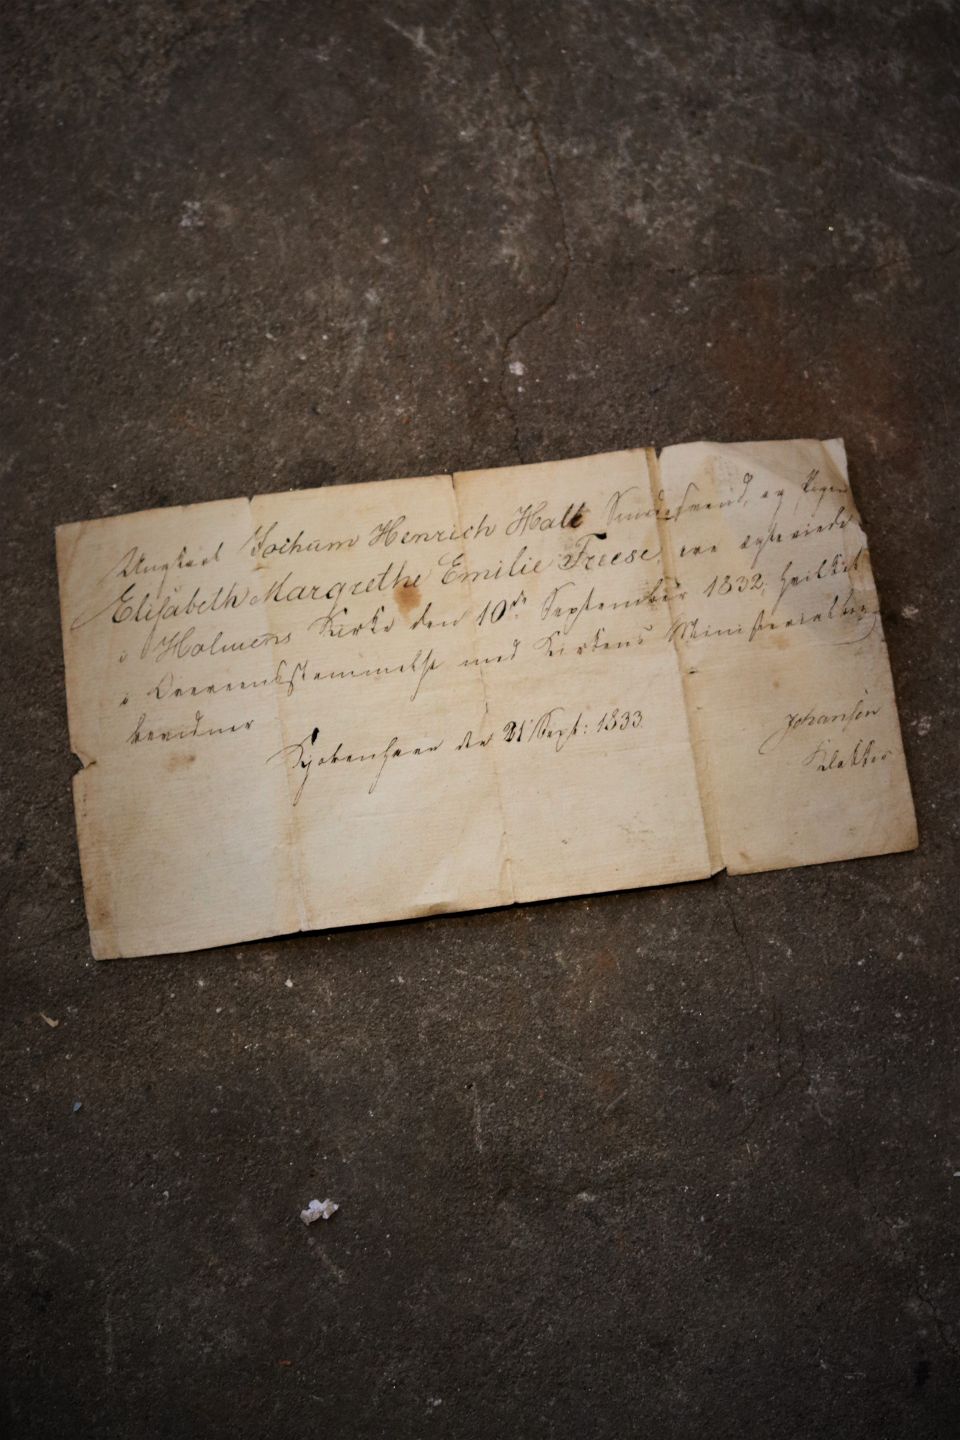 Ungkarl Jochum Henrich Halt Smedesvend, og Pigen
Elisabeth Margrethe Emilie Freese, ere ægteviede
i Holmens Kirke den 10de September 1832, hvilket
i Overeensstemmelse med Kirkens Ministerialbog
bevidner
Kjøbenhavn den 21 Sept: 1833
Johansen
Klokker